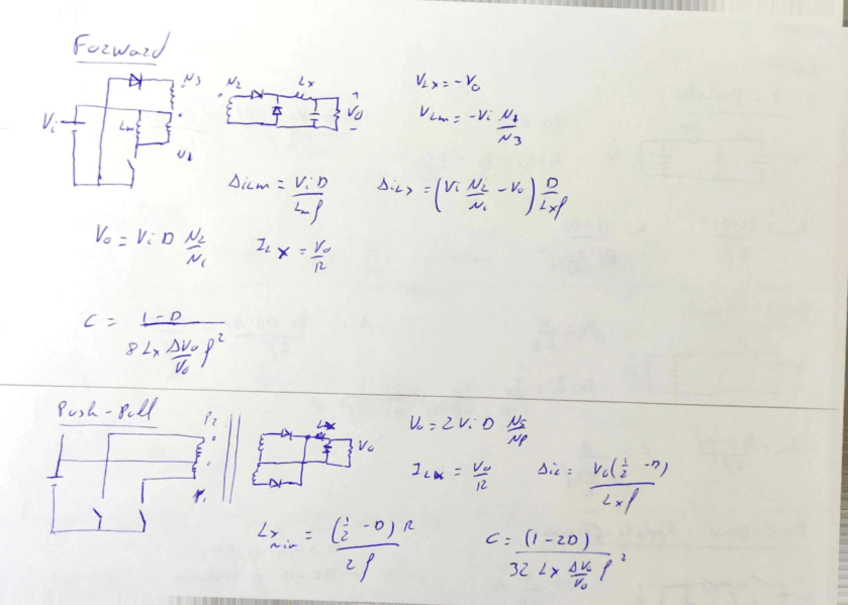 Forward
N3
N2
Lx
+
Vi
Lm
N1
Vo
-
VLx = -Vo
VLm = -Vi N1/N3
ΔiLm = Vi D / Lm f
ΔiLx = (Vi N2/N1 - Vo) D / Lx f
Vo = Vi D N2/N1
ILx = Vo/R
C = 1-D / 8 Lx ΔVo/Vo f²
Push-Pull
P2
P1
Lx
Vo
Vo = 2 Vi D Ns/Np
ILx = Vo/R
ΔiL = Vo(1/2 - D) / Lx f
Lx min = (1/2 - D) R / 2 f
C = (1-2D) / 32 Lx ΔVo/Vo f²